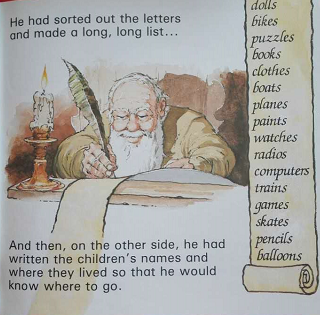 He had sorted out the letters
and made a long, long list...
dolls
bikes
puzzles
books
clothes
boats
planes
paints
watches
radios
computers
trains
games
skates
pencils
balloons
And then, on the other side, he had
written the children's names and
where they lived so that he would
know where to go.